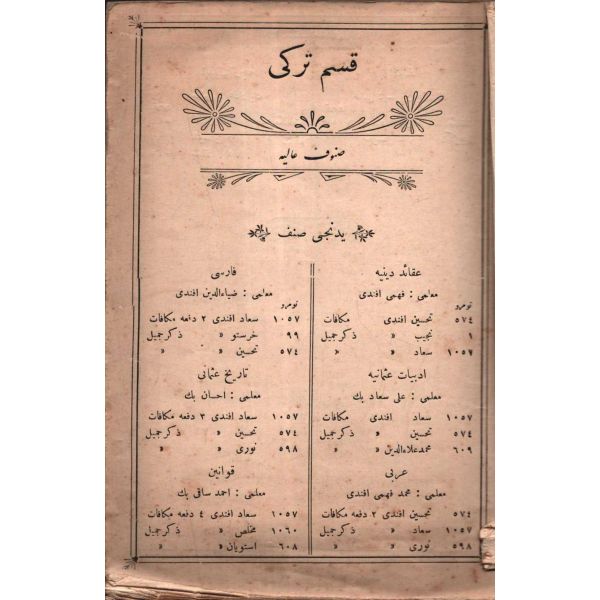 قسم تركی
صنوف عاليه
يدنجی صنف
عقائد دينيه
معلمی : فهمی افندی
نومرو
٥٧٤ تحسين افندی مكافات
١ نجيب » ذكر جميل
١٠٥٧ سعاد » »
ادبيات عثمانيه
معلمی : علی سعاد بك
١٠٥٧ سعاد افندی مكافات
٥٧٤ تحسين » ذكر جميل
٦٠٩ محمد علاءالدين » »
عربی
معلمی : محمد فهمی افندی
٥٧٤ تحسين افندی ٢ دفعه مكافات
١٠٥٧ سعاد » ذكر جميل
٥٩٨ نوری » »
فارسی
معلمی : ضياءالدين افندی
نومرو
١٠٥٧ سعاد افندی ٢ دفعه مكافات
٩٩ خرستو » ذكر جميل
٥٧٤ تحسين » »
تاريخ عثمانی
معلمی : احسان بك
١٠٥٧ سعاد افندی ٣ دفعه مكافات
٥٧٤ تحسين » ذكر جميل
٥٩٨ نوری » »
قوانين
معلمی : احمد ساقی بك
١٠٥٧ سعاد افندی ٤ دفعه مكافات
١٠٦٠ مخلص » ذكر جميل
٦٠٨ استويان » »